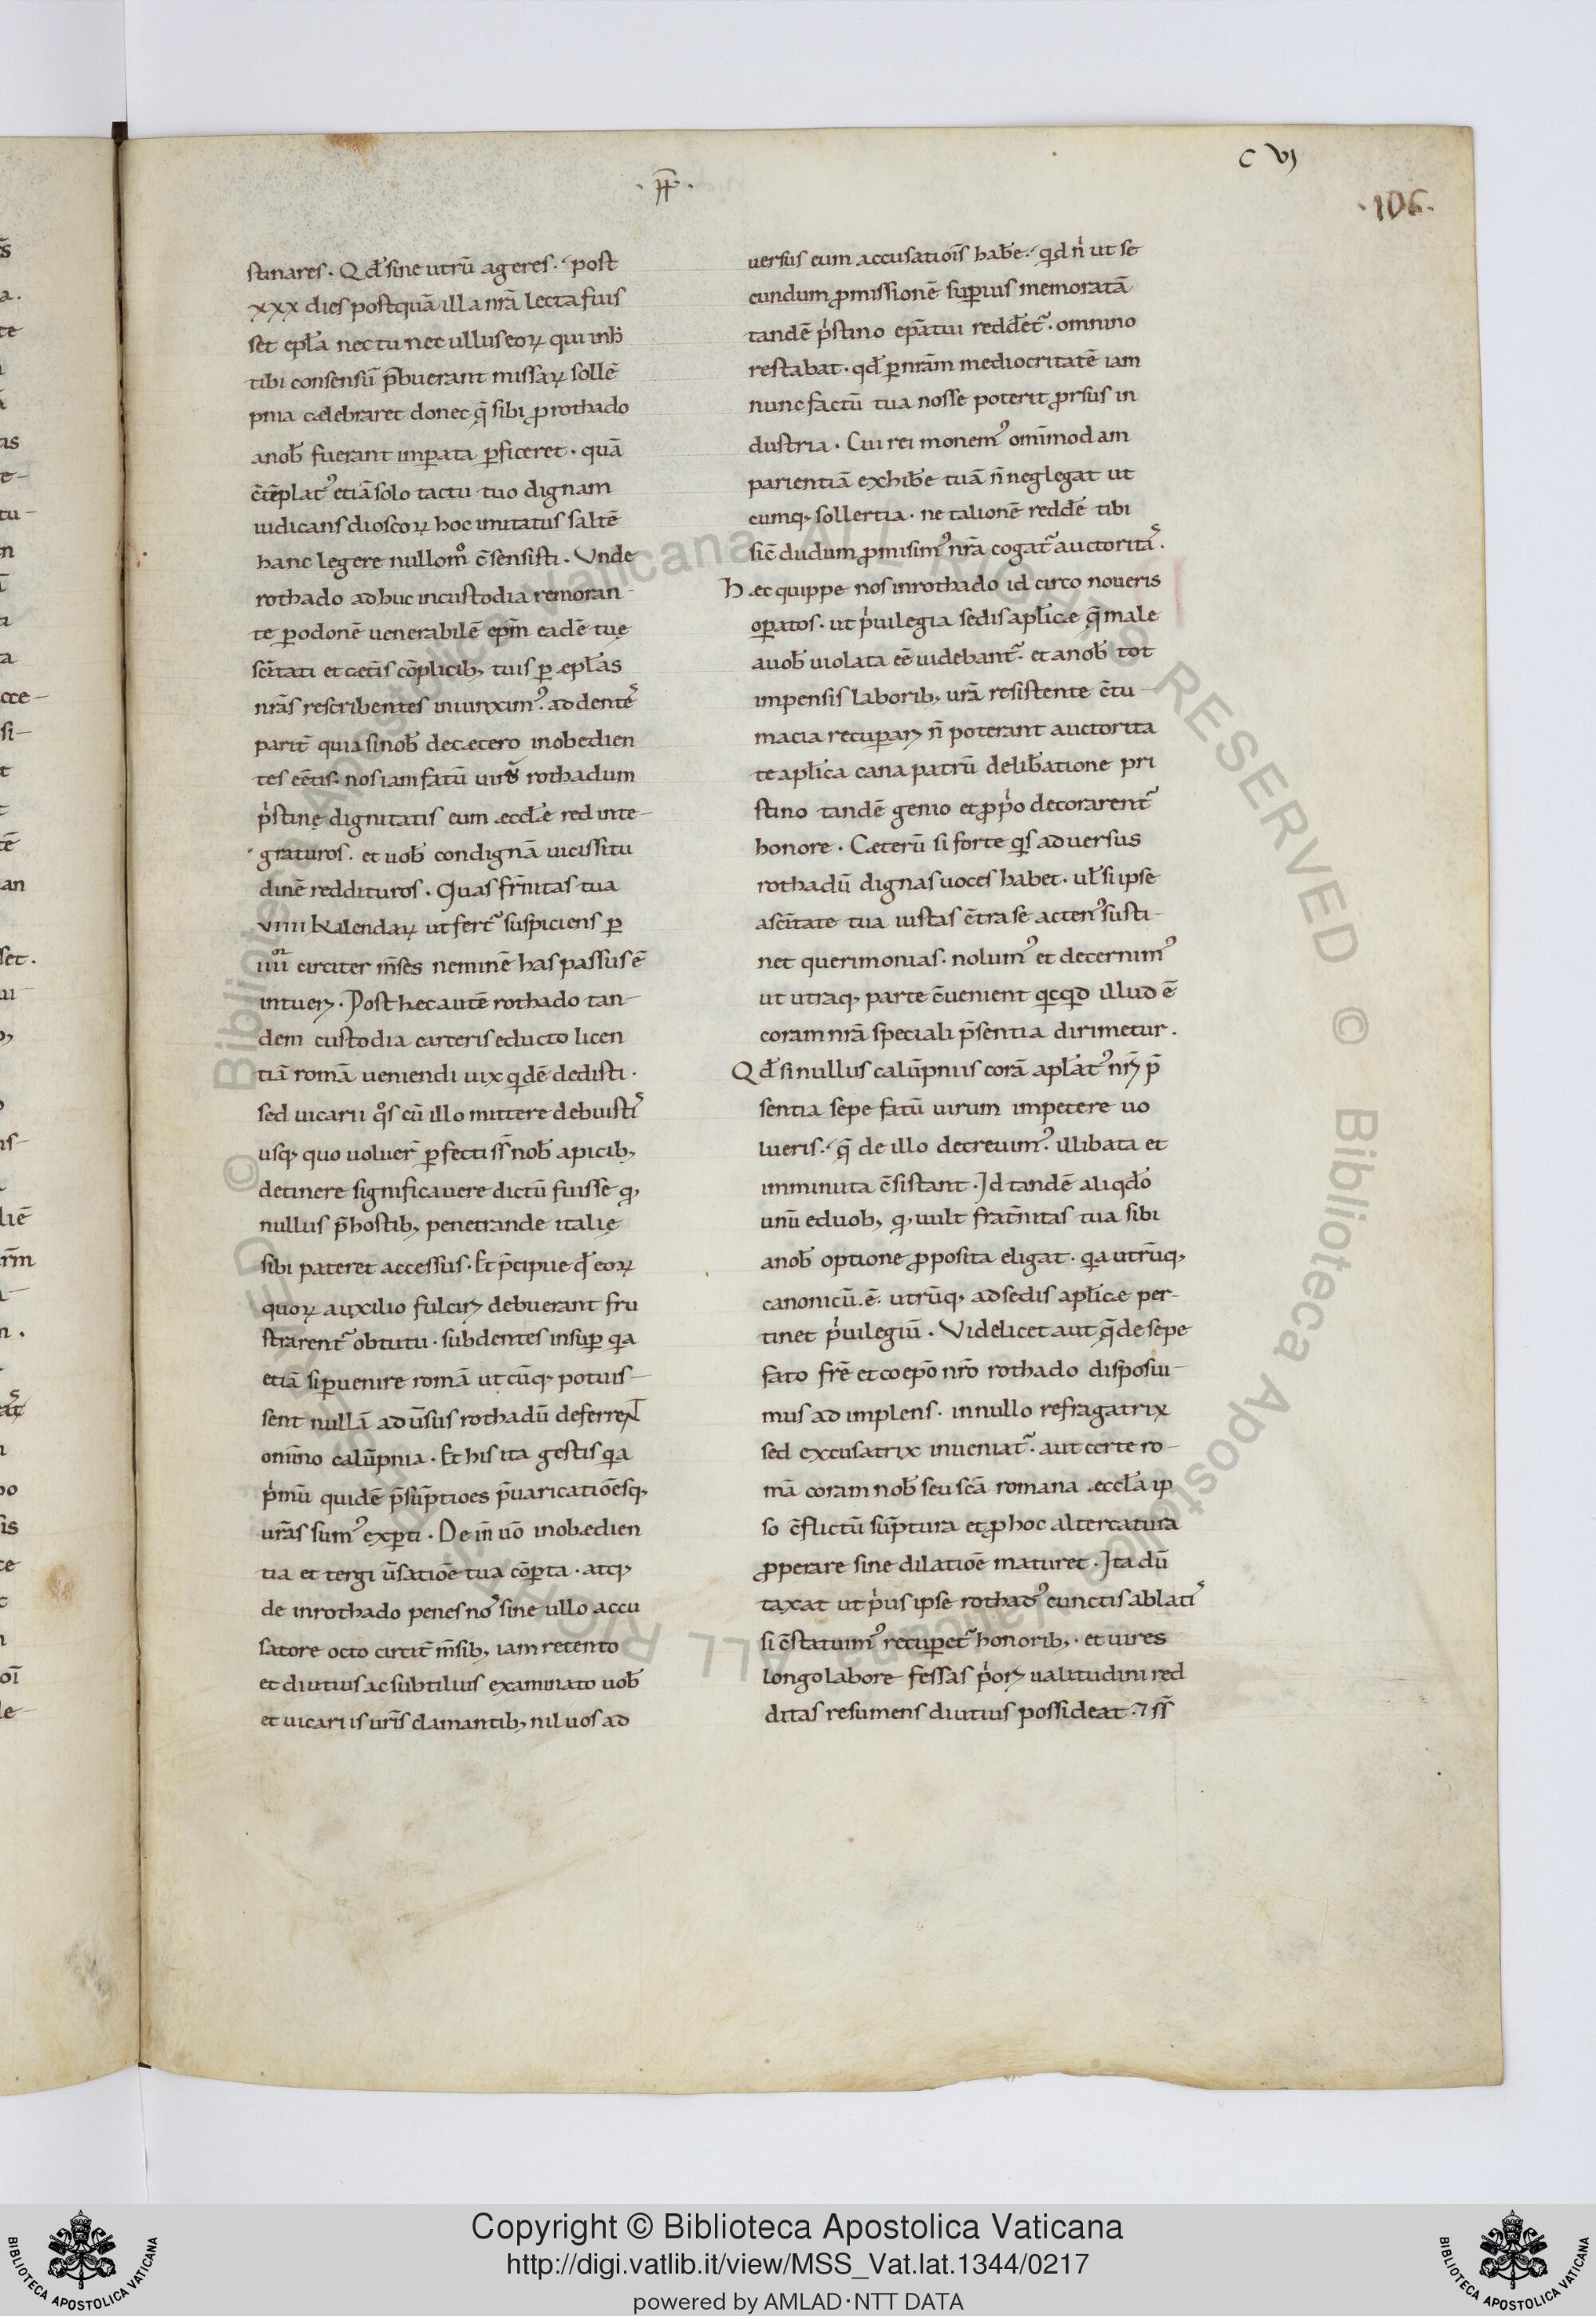 ·PP·
C VI
·106·
stinares. Qd̄ sine utrū ageres. post
xxx dies postquā illa nr̄a lecta fuis
set epl̄a nec tu nec ullus eoꝝ qui inh̄
tibi consensū p̄buerant missaꝝ sollē
pnia cælebraret donec q̄ sibi ꝓ rothado
a nob̄ fuerant imꝑata ꝑficeret. quā
c̄tēplatꝰ etiā solo tactu tuo dignam
iudicans dioscoꝝ hoc imitatus saltē
hanc legere nullom̊ c̄sensisti. Vnde
rothado adhuc in custodia remoran-
te ꝑ odonē uenerabilē ep̄m eadē tuę
sc̄itati et cæt̄is cōplicib; tuis ꝑ æpl̄as
nr̄as rescribentes iniunximꝰ. addentes
parit̄ quia si nob̄ decætero inobedien
tes eēt̄is. nos iam fatū uirū rothadum
p̍stinę dignitatis cum æccl̄e redinte-
graturos. et uob̄ condignā uicissitu
dinē reddituros. Quas fr̄nitas tua
viiii kalendaꝝ ut fert᷑ suspiciens ꝑ
iiiior circiter m̄ses neminē has passus ē
intueꝝ. Post hec autē rothado tan-
dem custodia carceris educto licen
tiā romā ueniendi uix qdē dedisti.
sed uicarii qͦs cū illo mittere debuistis
usq; quo uoluer̄ ꝑfecti ss̄ nob̄ apicib;
detinere significauere dictū fuisse q;
nullus p̄ hostib; penetrandę italię
sibi pateret accessus. Et p̄cipue qd̄ eoꝝ
quoꝝ auxilio fulciꝝ debuerant fru
strarent᷑ obtutu. subdentes insuꝑ qa
etiā si ꝑuenire romā utcūq; potuis-
sent nullā aduersus rothadū deferrent
omīno calūpnia. Et his ita gestis qa
p̍mū quidē p̄sūptioes p̄uaricatiōesq;
ur̄as sumꝰ exꝑti. Dein̄ uō inobædien
tia et tergiūsatiōe tua cōꝑta. atq;
de in rothado penes nos sine ullo accu
satore octo circit̄ m̄sib; iam retento
et diutius ac subtilius examinato uob̄
et uicariis ur̄is clamantib; nil uos ad
uersus eum accusatiōis hab̄e. qd n̍ ut se
cundum ꝓmissionē suꝑius memoratā
tandē p̍stino ep̄atui redd̄et᷑. omnino
restabat. qd̄ ꝑ nr̄am mediocritatē iam
nunc factū tua nosse poterit ꝓrsus in
dustria. Cui rei monemꝰ omīmodam
parientiā exhib̄e tuā n̄ neglegat ut
cumq; sollertia. ne talionē redd̄e tibi
sic̄ dudum ꝓmisimꝰ nr̄a cogat᷑ auctoritas.
Hæc quippe nos in rothado idcirco noueris
oꝑatos. ut p̍uilegia sedis apl̄icæ q̄ male
a uob̄ uiolata eē uidebant᷑. et a nob̄ tot
impensis laborib; ur̄a resistente c̄tu-
macia recuꝑaꝝ n̄ poterant auctorita
te apl̄ica cana patrū delib̄atione pri
stino tandē genio et ꝓp̍o decorarent᷑
honore. Cæterū si forte qs aduersus
rothadū dignas uoces habet. ul̄ si ipse
a sc̄itate tua iustas c̄tra se actenꝰ susti-
net querimonias. nolumꝰ et decernimꝰ
ut utraq; parte c̄uenient qcqd illud ē
coram nr̄a speciali p̄sentia dirimetur.
Qd̄ si nullus calūpniis corā apl̄atꝰ nrī p̄
sentia sepe fatū uirum impetere uo
lueris. q̄ de illo decreuimꝰ. illibata et
imminuta c̄sistant. Id tandē aliqd̄o
unū e duob; q; uult frat̄nitas tua sibi
a nob̄ optione ꝓposita eligat. qa utrūq;
canonicū .ē. utrūq; ad sedis apl̄icæ per-
tinet p̍uilegiū. Videlicet aut q̄ de sepe
fato fr̄e et coep̄o nr̄o rothado disposui-
mus adimplens. in nullo refragatrix
sed excusatrix inueniat᷑. aut certe ro-
mā coram nob̄ seu sc̄a romana æccl̄a ip
so c̄flictū sūptura et ꝓ hoc altercatura
ꝓperare sine dilatiōe maturet. Ita dū
taxat ut p̍us ipse rothadꝰ cunctis ablatis
si c̄statuimꝰ recuꝑet᷑ honorib;. et uires
longo labore fessas p̍oꝝ ualitudini red
ditas resumens diutius possideat. ⁊ ss̄
Copyright © Biblioteca Apostolica Vaticana
http://digi.vatlib.it/view/MSS_Vat.lat.1344/0217
powered by AMLAD·NTT DATA